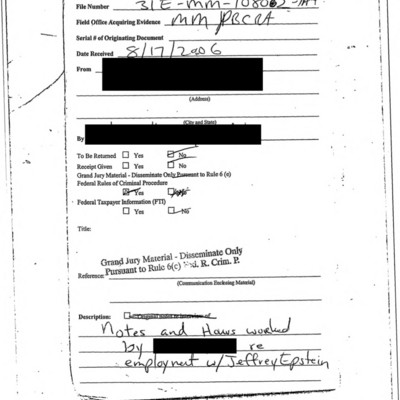 File Number 31E-MM-108062
Field Office Acquiring Evidence MM PBCRA
Serial # of Originating Document
Date Received 8/17/2006
From
(Address)
(City and State)
By
To Be Returned ☐ Yes ☐ No
Receipt Given ☐ Yes ☐ No
Grand Jury Material - Disseminate Only Pursuant to Rule 6 (e)
Federal Rules of Criminal Procedure
☐ Yes ☐ No
Federal Taxpayer Information (FTI)
☐ Yes ☐ No
Title:
Grand Jury Material - Disseminate Only
Reference: Pursuant to Rule 6(e) Fed. R. Crim. P.
(Communication Enclosing Material)
Description: ☐ Original notes re interview of
Notes and Hours worked
by re
employment w/ Jeffrey Epstein